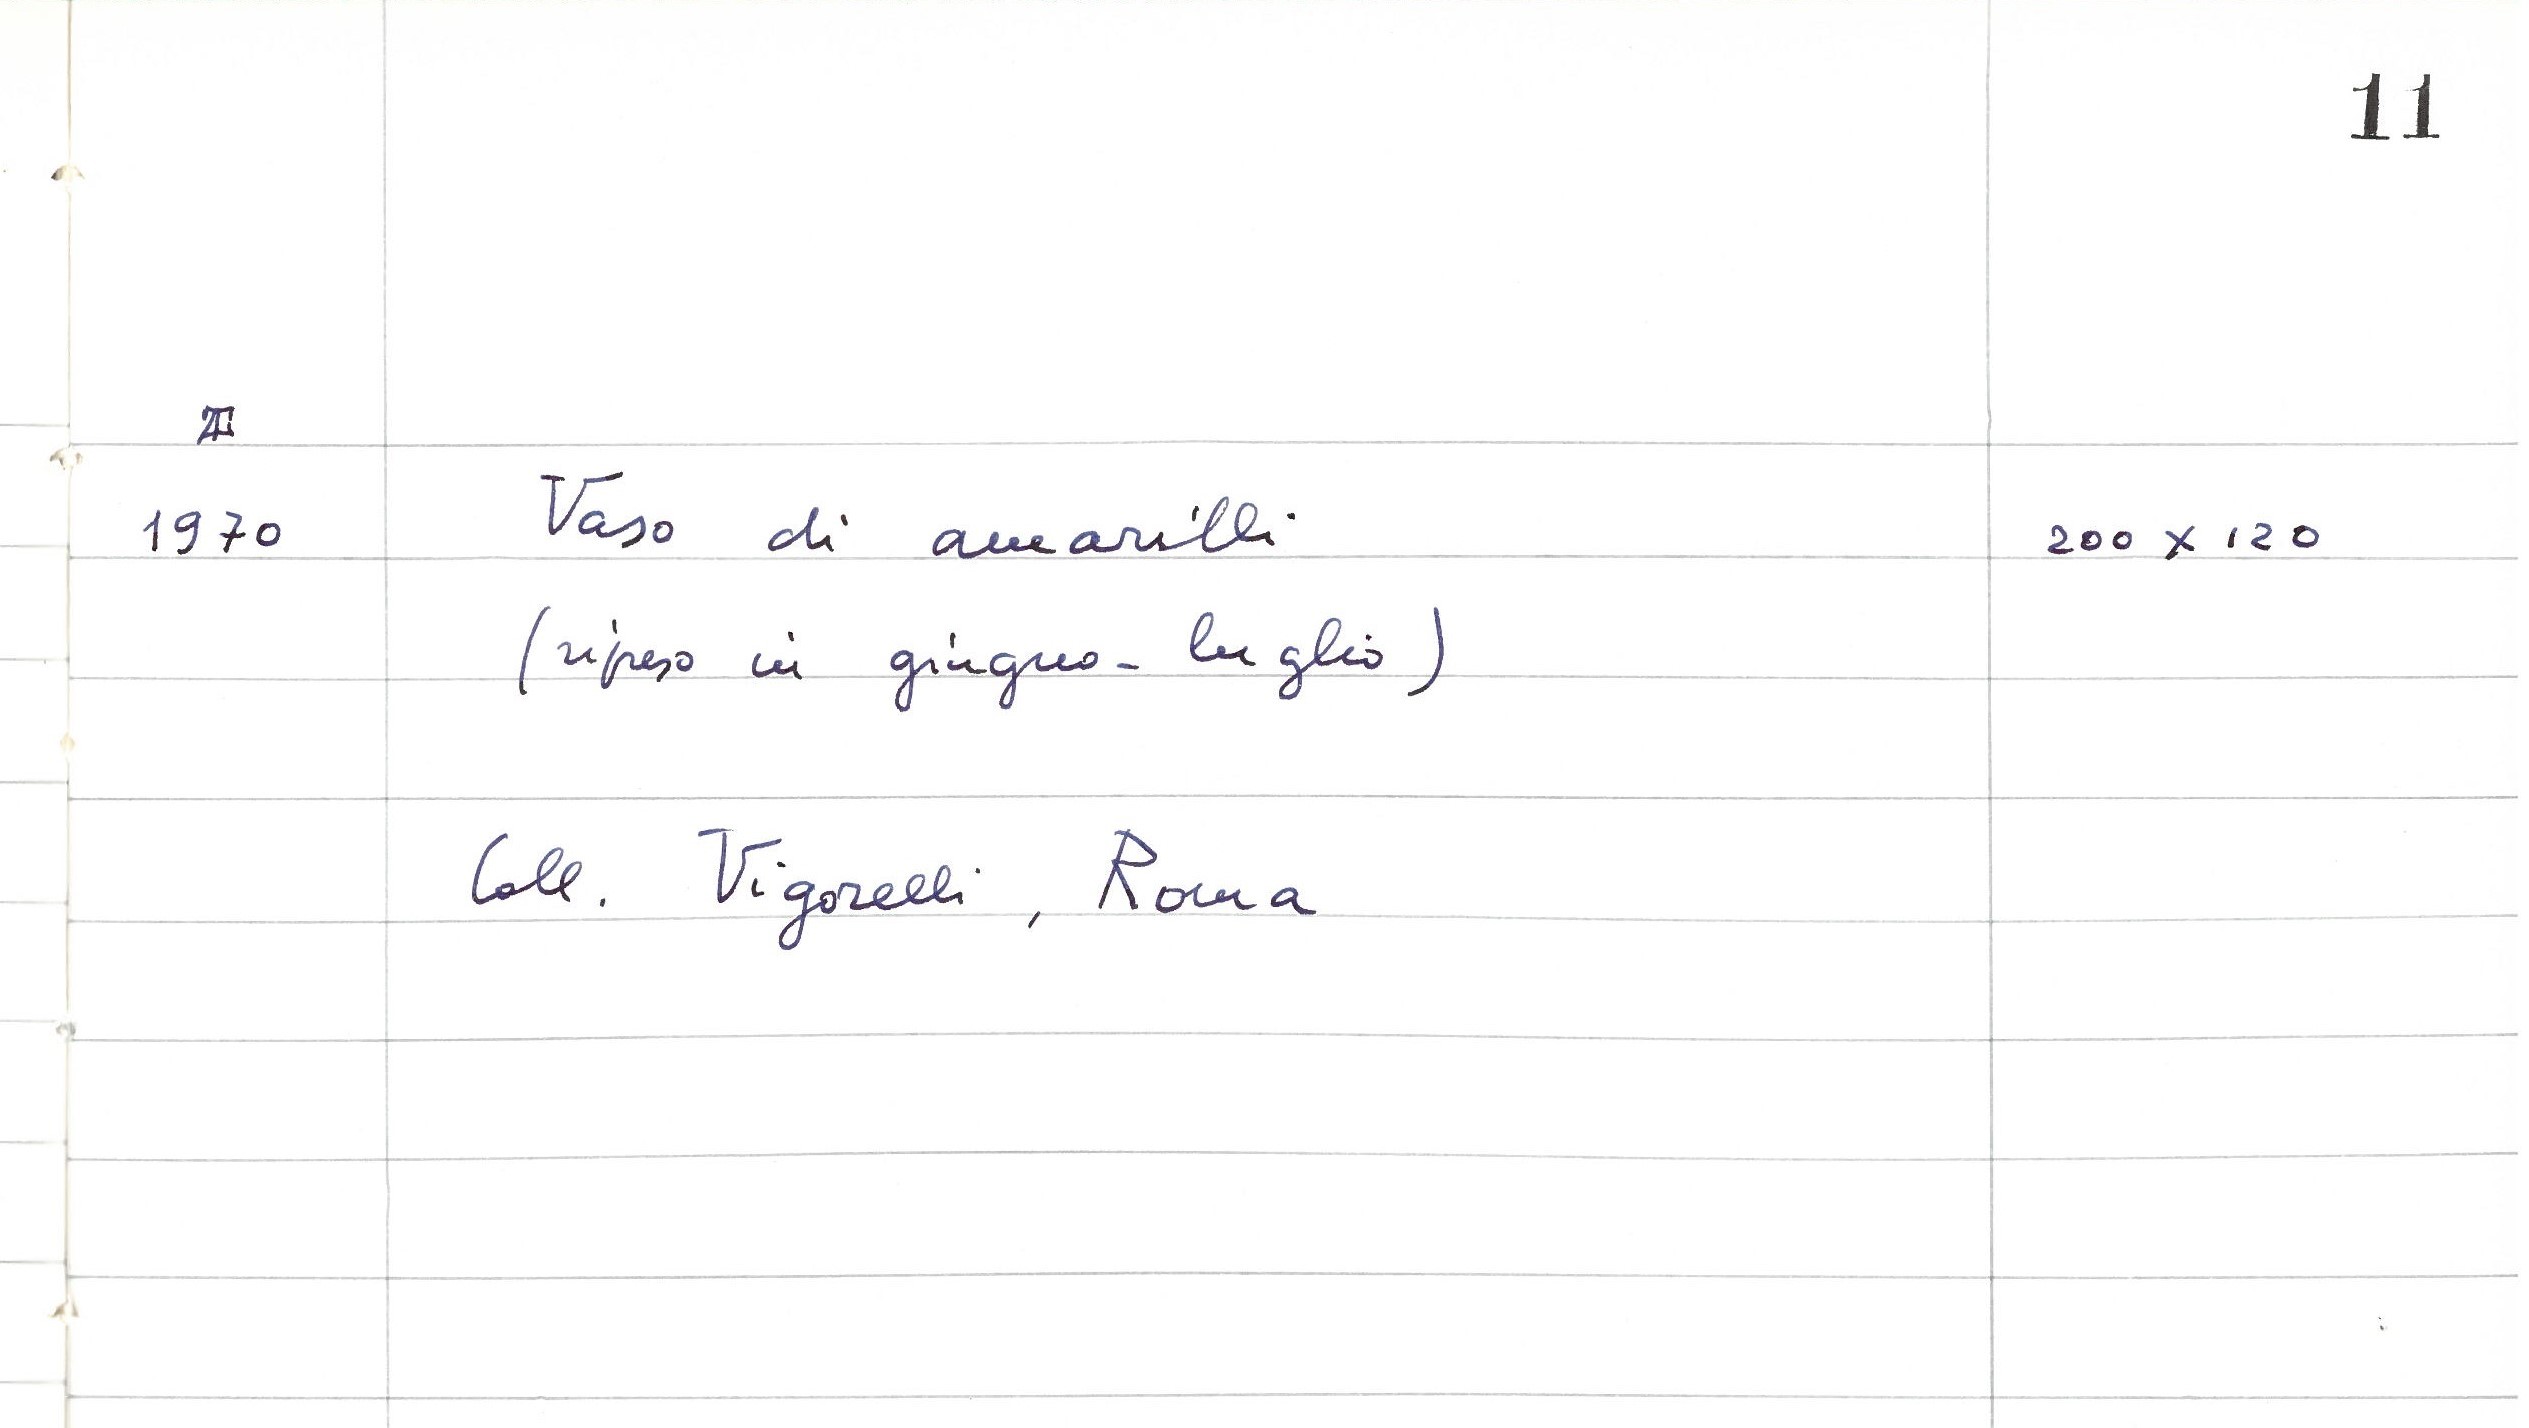 11
1970 Vaso di amarilli 200 x 120
(ripreso in giugno - luglio)
Coll. Vigorelli, Roma